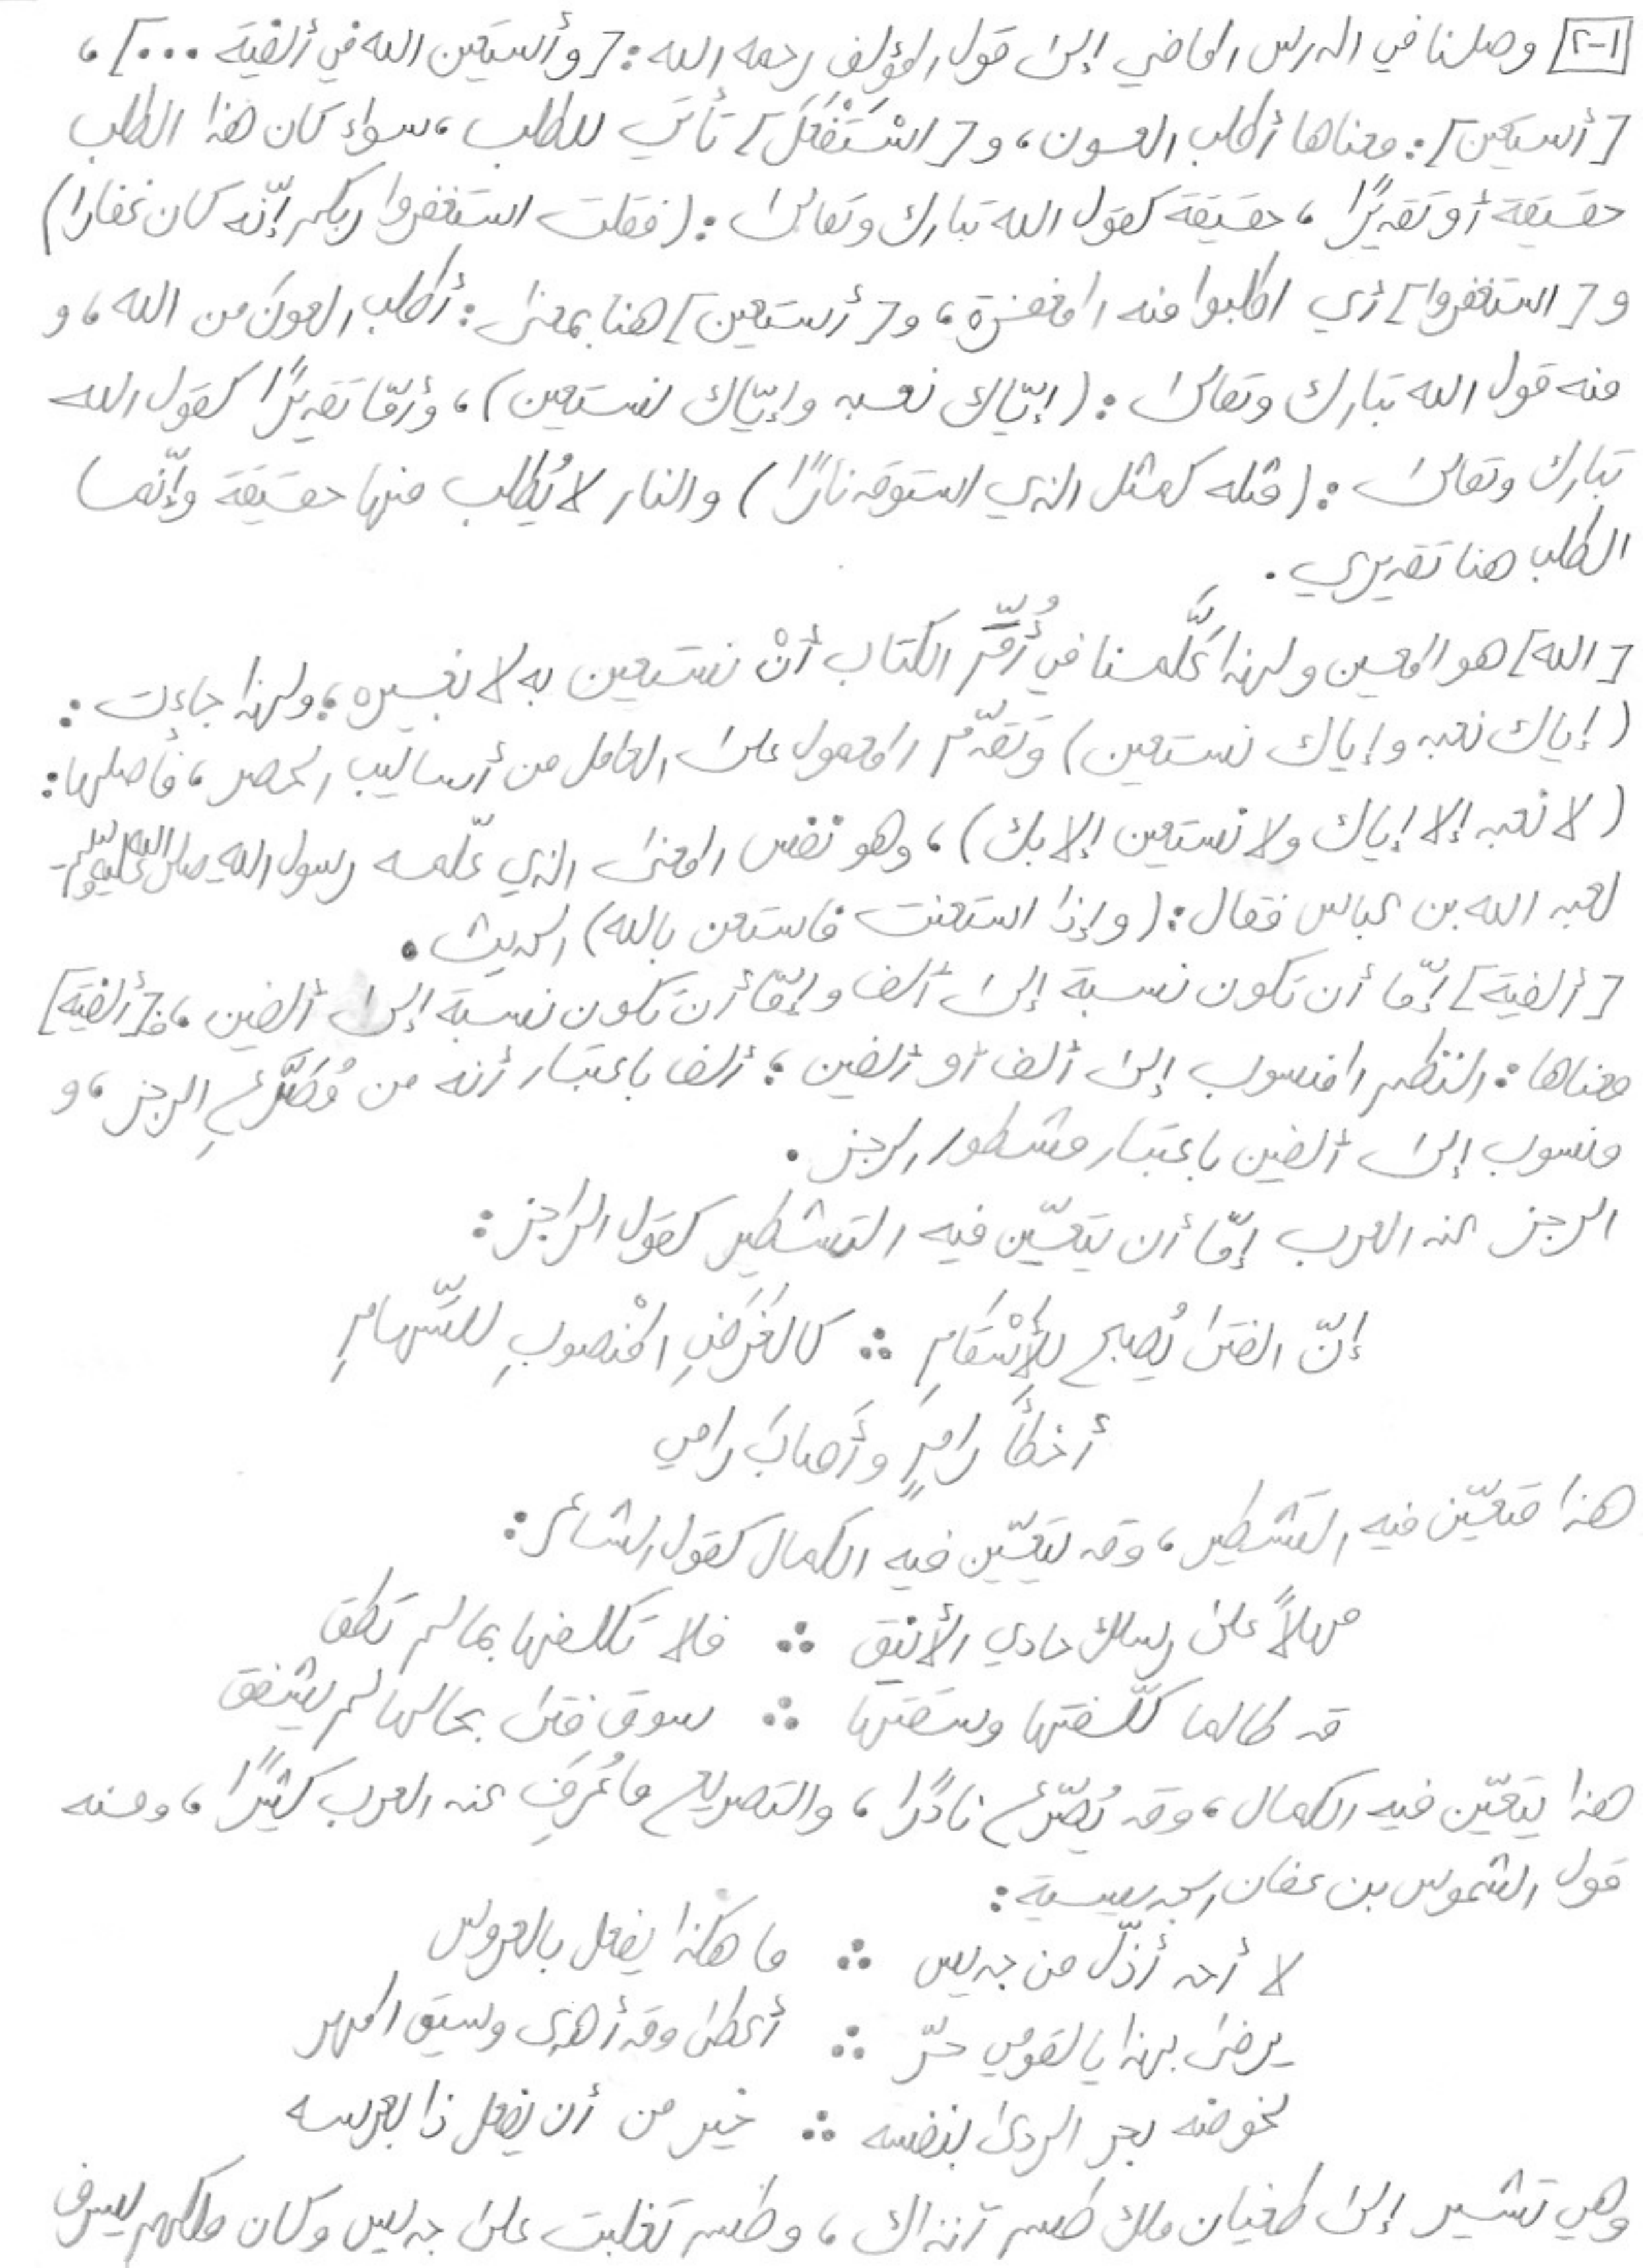 [٢-١] وصلنا في الدرس الماضي إلى قول المؤلف رحمه الله: [وأستعين الله في ألفية ...]،
[أستعين]: معناها أطلب العون، و[اسْتَفْعَلَ] تأتي للطلب، سواء كان هذا الطلب
حقيقة أو تقديرًا، حقيقة كقول الله تبارك وتعالى: (فقلت استغفروا ربكم إنّه كان غفارا)
و[استغفروا] أي اطلبوا منه المغفرة، و[أستعين] هنا بمعنى: أطلب العون من الله، و
منه قول الله تبارك وتعالى: (إيّاك نعبد وإيّاك نستعين)، وأمّا تقديرًا كقول الله
تبارك وتعالى: (مثله كمثل الذي استوقد نارًا) والنار لا يُطلب منها حقيقة وإنّما
الطلب هنا تقديري.
[الله] هو المعين ولهذا علَّمنا في أُمِّ الكتاب أنْ نستعين به لا بغيره؛ ولهذا جاءت:
(إياك نعبد وإياك نستعين) وتَقدّم المعمول على العامل من أساليب الحصر، فأصلها:
(لا نعبد إلا إياك ولا نستعين إلا بك)، وهو نفس المعنى الذي علّمه رسول الله صلى الله عليه وسلم
لعبد الله بن عباس فقال: (وإذا استعنت فاستعن بالله) الحديث.
[ألفية] إمّا أن تكون نسبة إلى ألف وإمّا أن تكون نسبة إلى ألفين، فـ[ألفية]
معناها: النظم المنسوب إلى ألف أو ألفين؛ ألف باعتبار أنه من مُصَرَّعِ الرجز، و
منسوب إلى ألفين باعتبار مشطور الرجز.
الرجز عند العرب إمّا أن يتعيّن فيه التشطير كقول الراجز:
إنّ الفتى يُصبح للأَسْقَامِ ∴ كالغَرَضِ المنْصوبِ للسِّهامِ
أخطأَ رامٍ وأَصابَ رامي
هذا متعيّن فيه التشطير، وقد يتعيّن فيه الكمال كقول الشاعر:
مهلاً على رسلك حادي الأنيق ∴ فلا تكلفها بما لم تطق
قد طالما كلّفتها وسقتها ∴ سوق فتى بحالها لم يشفق
هذا يتعيّن فيه الكمال، وقد يُصرّع نادرًا، والتصريع ما عُرِفَ عند العرب كثيرًا، ومنه
قول الشموس بن عفان الجديسية:
لا أحد أذلّ من جديس ∴ ما هكذا يفعل بالعروس
يرضى بهذا يا لقومي حرّ ∴ أعطى وقد أهدى وسيق المهر
لخوضه بحر الردى بنفسه ∴ خير من أن يفعل ذا بعرسه
وهي تشير إلى طغيان ملك طسم آنذاك، وطسم تغلبت على جديس وكان ملكهم يسرف